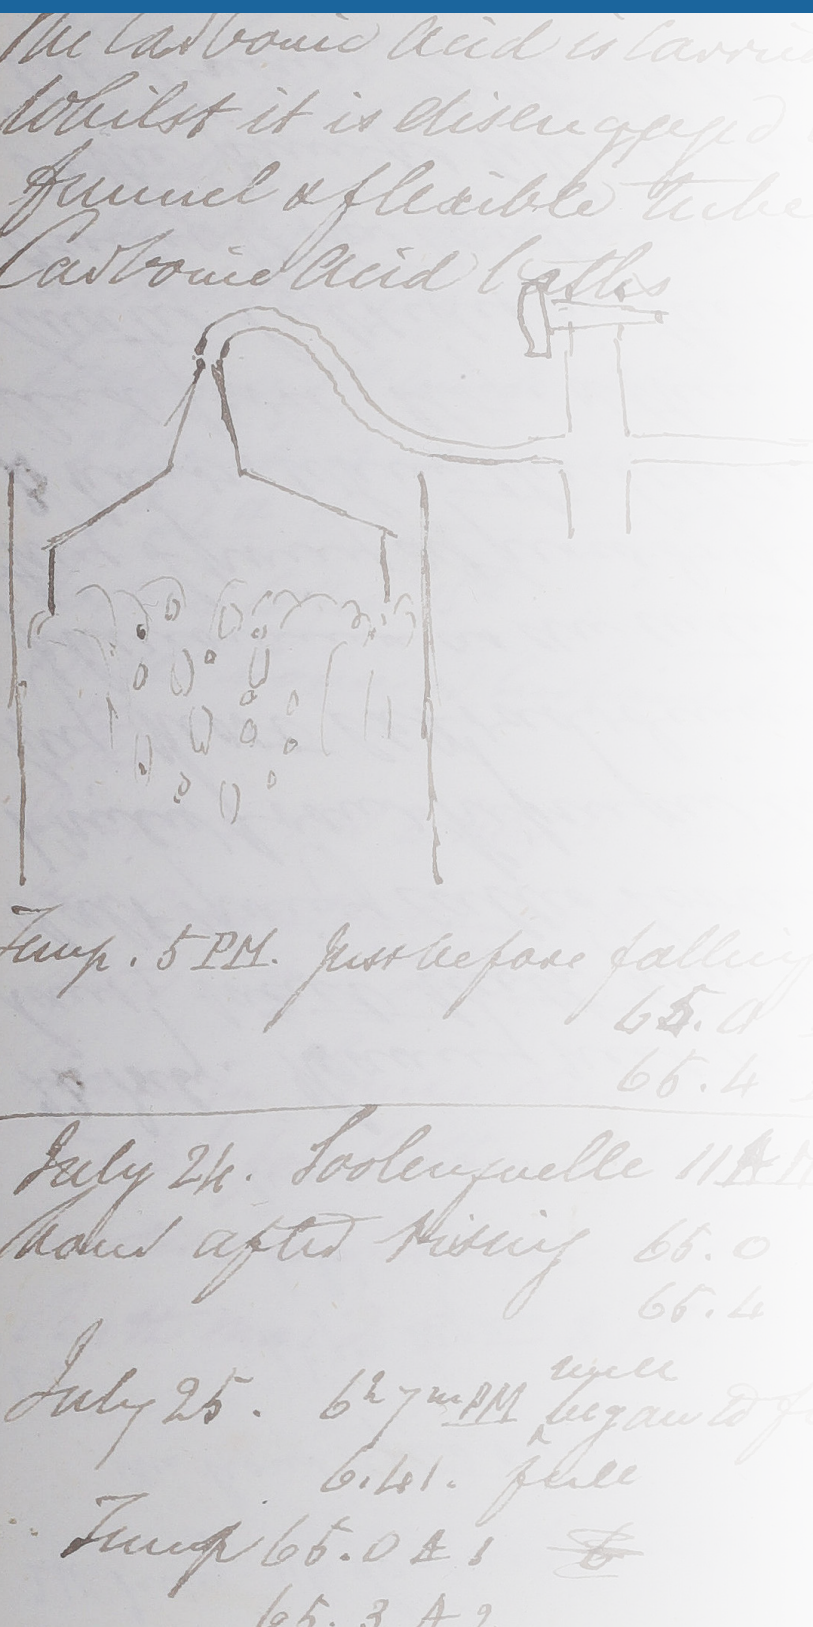 The Carbonic Acid is carried
Whilst it is disengaged
funnel & flexible tube
Carbonic Acid baths
Temp. 5 PM. Just before falling
65.0
65.4
July 24. Soolensprudel 11 AM
hour after rising 65.0
65.4
July 25. 6h 7m PM well began to
6.41. full
Temp 65.0 A 1
65.3 A 2